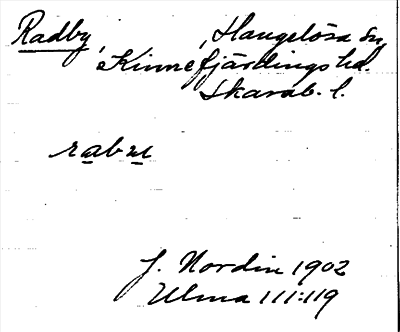 Radby, Haugelösa Sn,
Kinnefjärdings hd.
Skarab. l.
rabu
J. Nordin 1902
Ulma 111:119